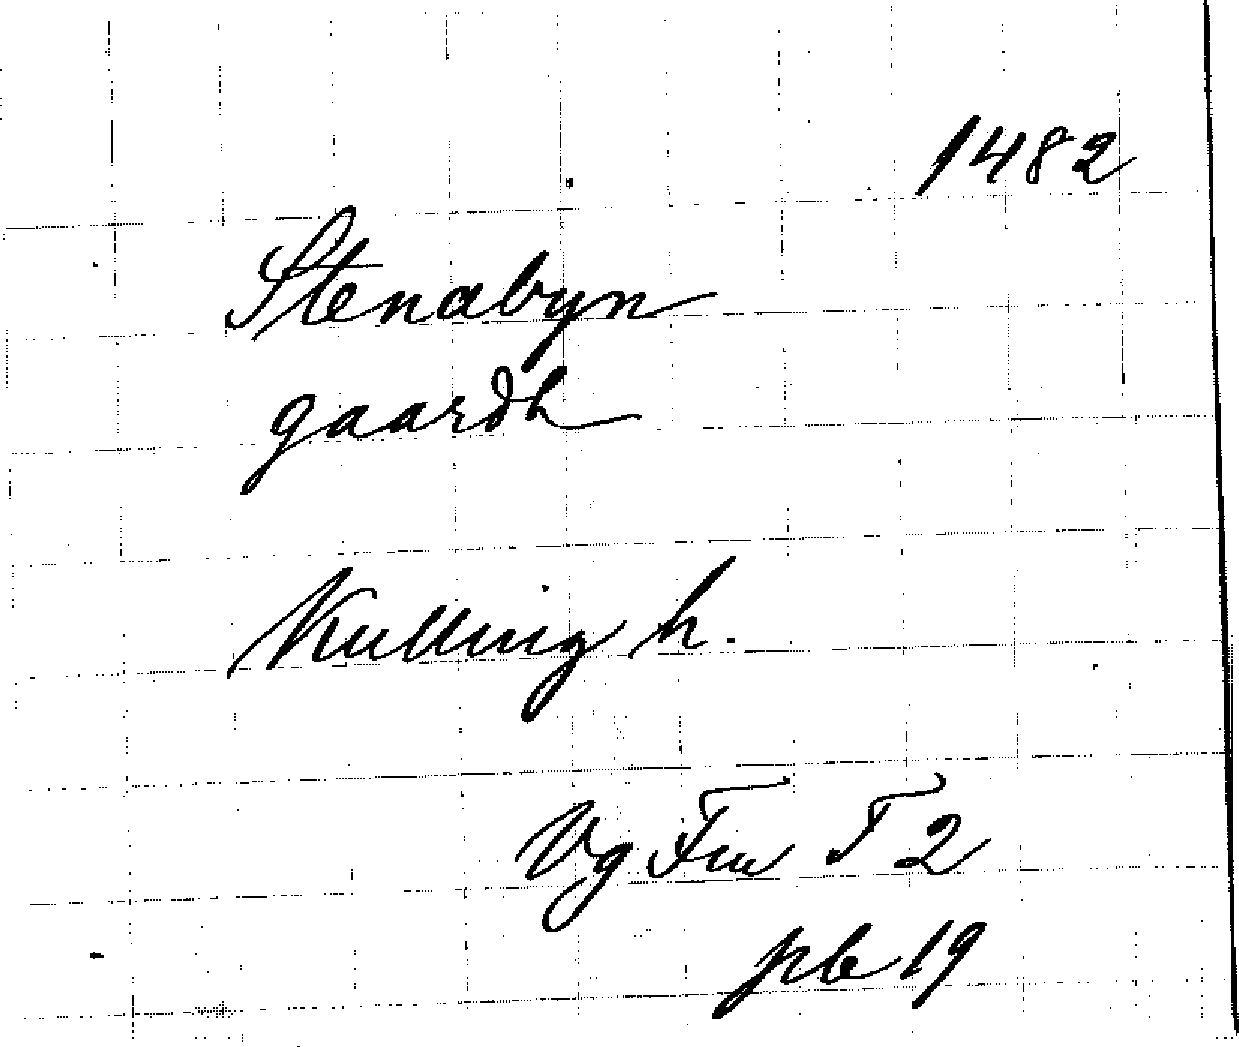 1482
Stenabyn
gaardh
Kulling h.
Vg Fru T 2
pb 19